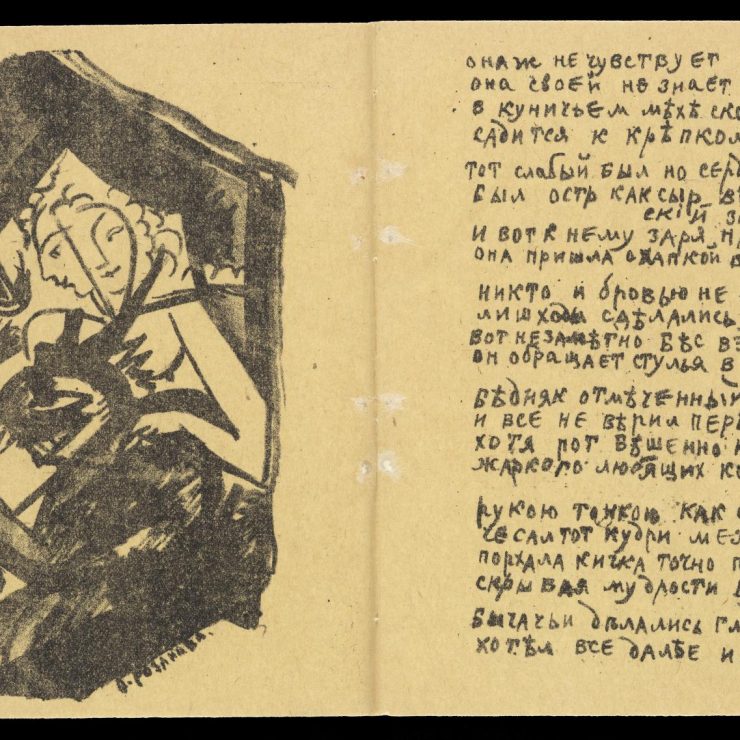 О. Розанова.
она ж не чувствует
она своей не знает
в куничьем мѣхѣ ско
садится к крѣпком
тот слабый был но сер
был остр как сыр
скій
и вот к нему заря
она пришла охапкой
никто и бровью не
лиш ходы сдѣлались
вот незамѣтно бѣс
он обращает стулья в
бѣдняк отмѣченный
и все не вѣрил пер
хотя пот бѣшенно
жаркого любящих ко
рукою тонкою как
чесал тот кудри ме
порхала кичка точно п
скрывая мудрости
бычачьи дѣлались гл
хотѣл все далѣе и